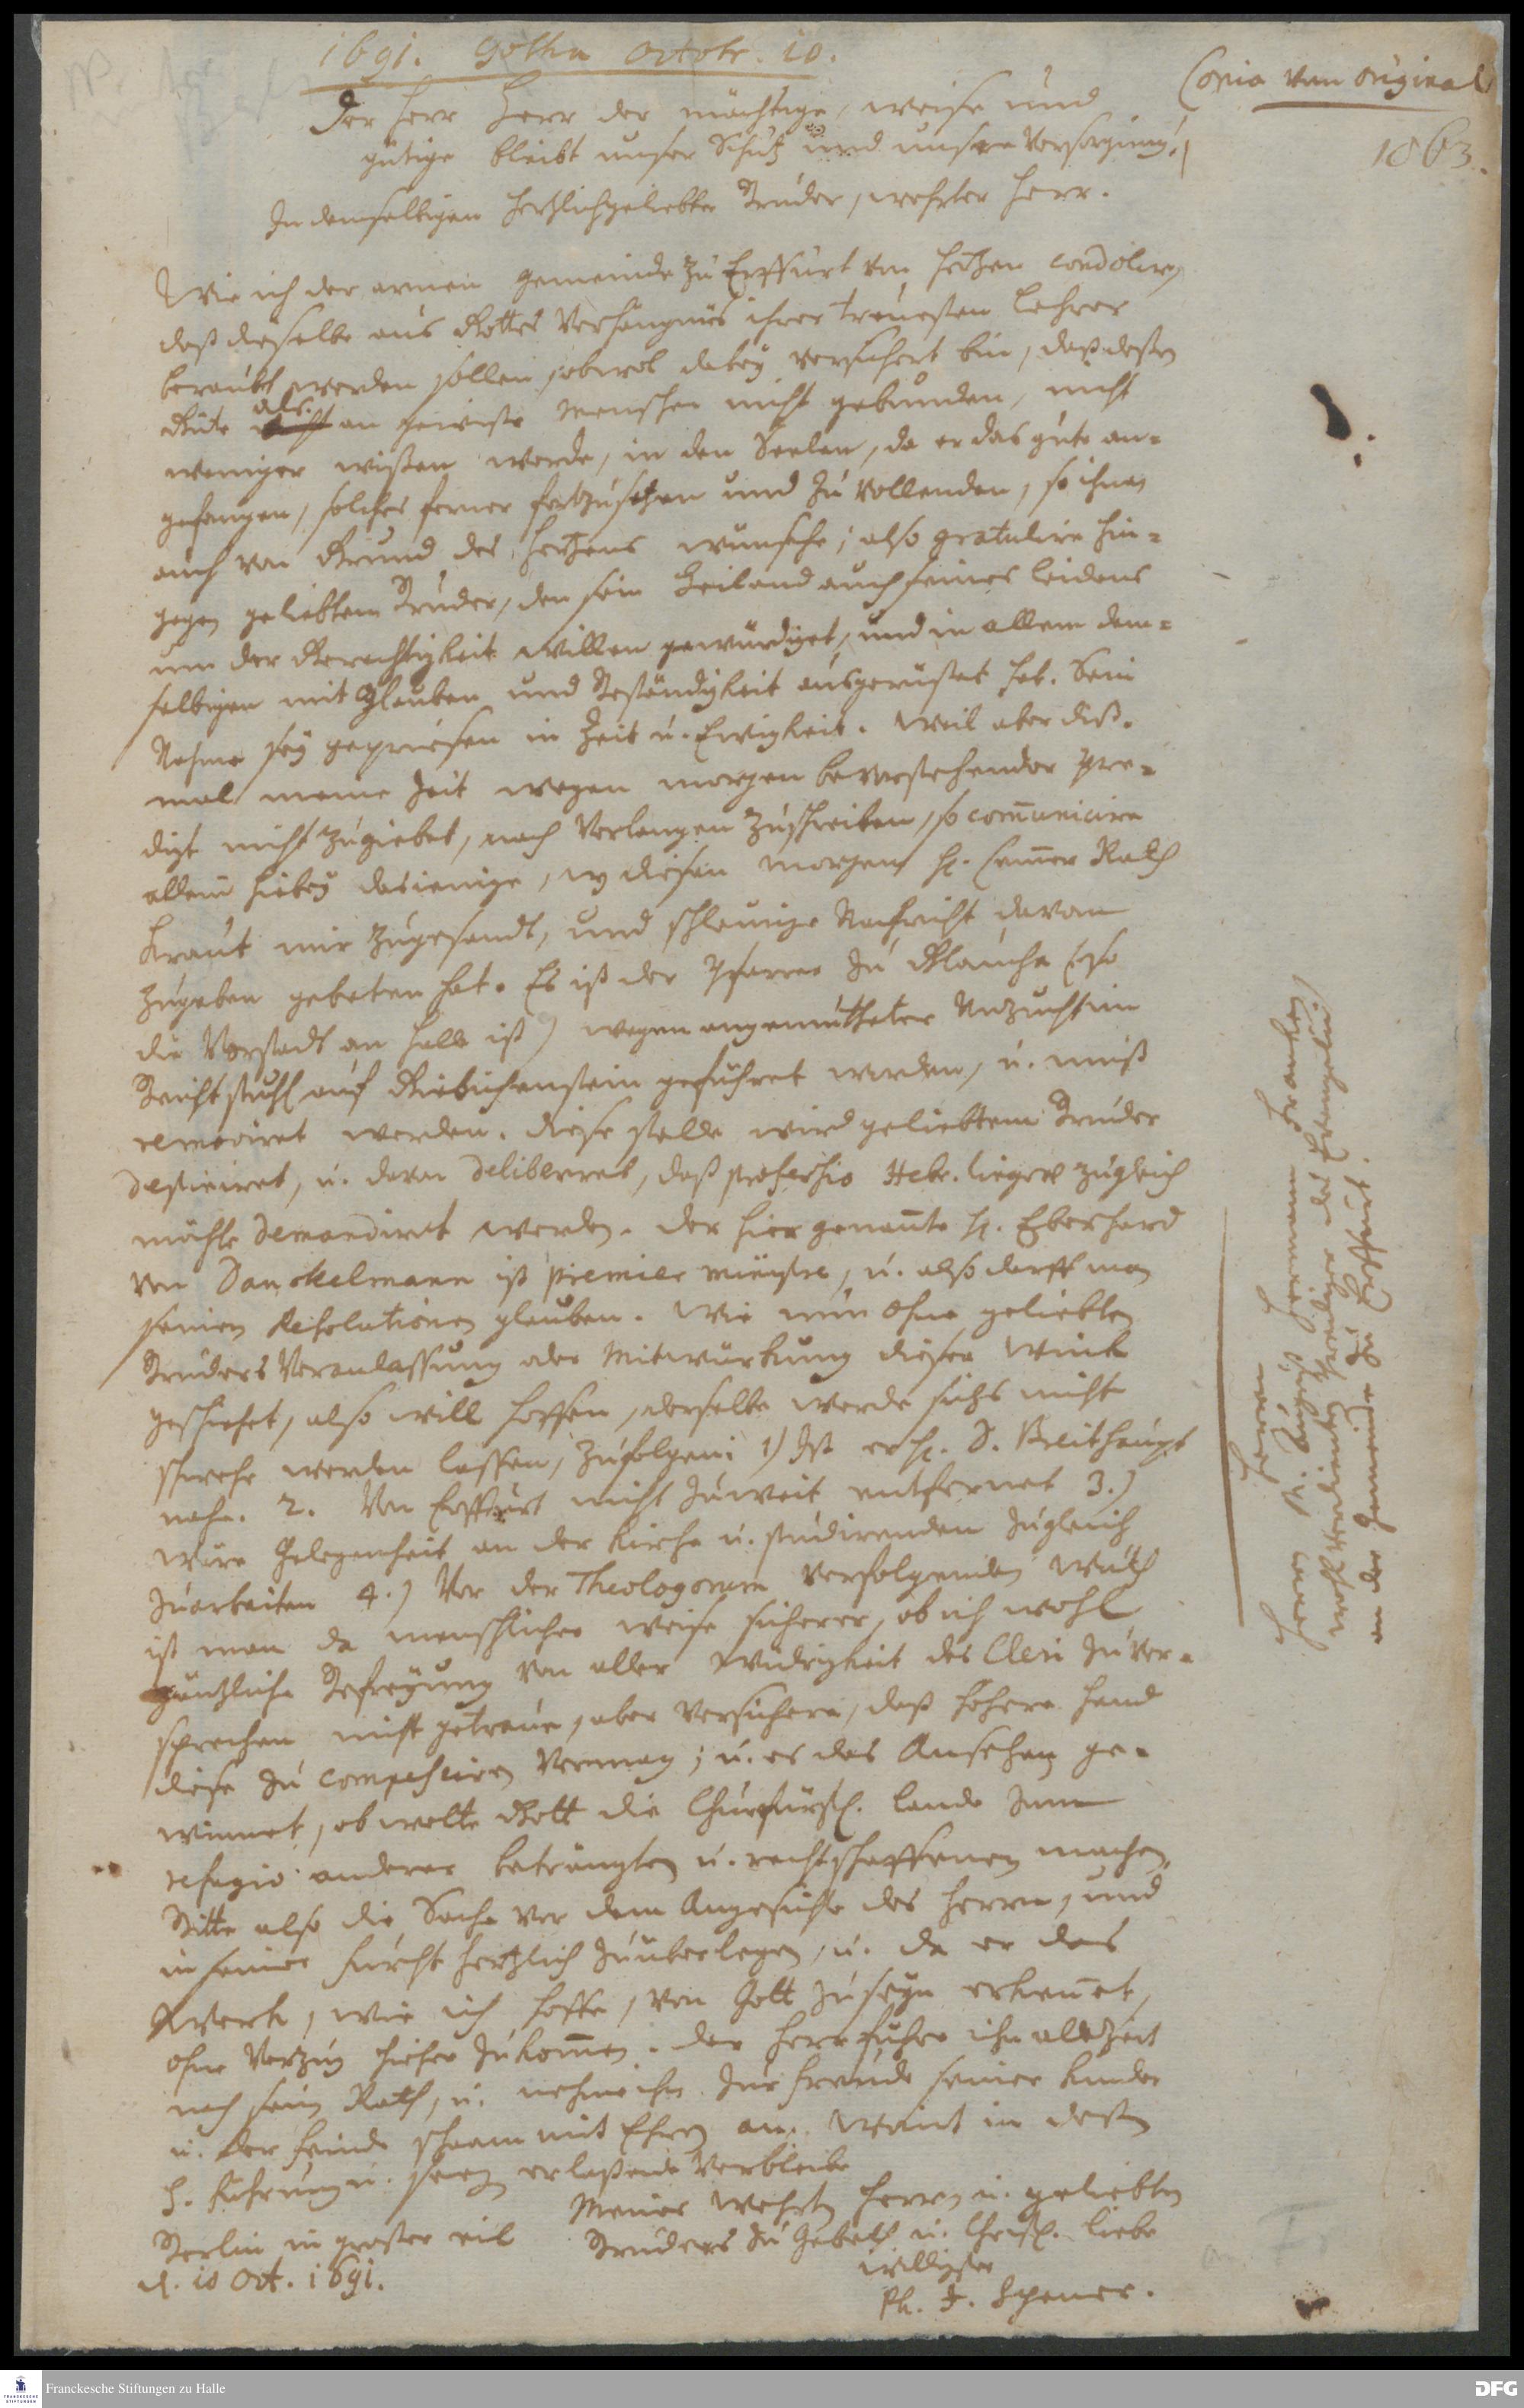 1691. Gotha Octobr. 10.
Copia vom Original
1863.
Der Herr Herr der mächtige, weise und
gütige bleibt unser Schutz und unsere Versorgung!
In demselbigen Hertzlichgeliebter Bruder, wehrter Herr.
Wie ich der armen Gemeinde zu Erffurt von Hertzen condolire,
daß dieselbe aus Gottes Verhängnüs ihrer treuesten Lehrer
beraubt werden sollen, obwol dabey versichert bin, daß deßen
Güte als an gewiße Menschen nicht gebunden, nicht
weniger wißen werde, in den Seelen, da er das gute an-
gefangen, solches ferner fortzusetzen und zu vollenden, so ihnen
auch von Grund des Hertzens wunsche; also gratulire hin-
gegen geliebtem Bruder, den sein Heiland auch seines leidens
um der Gerechtigkeit willen gewürdiget, und in allem dem-
selbigen mit Glauben und Beständigkeit ausgerüstet hat. Sein
Nahme sey gepriesen in Zeit u. Ewigkeit. Weil aber diß-
mal meine Zeit wegen morgen bevorstehender Pre-
digt nicht zugiebet, nach Verlangen zuschreiben, so communicire
allein hiebey dasienige, so diesen morgen H. Cammer Rath
Kraut mir zugesandt, und schleunige Nachricht davon
zugeben gebeten hat. Es ist der Pfarrer zu Glaucha (so
die Vorstadt an Halle ist) wegen angemutheter Unzucht im
Beichtstuhl auf Giebichenstein geführet worden, u. muß
removiret werden. Diese stelle wird geliebtem Bruder
destiniret, u. davon deliberiret, daß professio Hebr. linguæ zugleich
möchte demandiret werden. Der hier genante H. Eberhard
von Danckelmann ist premier ministre, u. also darff man
seinen Resolutionen glauben. Wie nun ohne geliebten
Bruders Veranlassung oder Mitwürckung dieser Winck
geschiehet, also will hoffen, derselbe werde sichs nicht
schwehr werden lassen, zufolgen: 1) Ist er H. D. Breithaupt
nahe. 2. Von Erffurt nicht zuweit entfernet 3.)
wäre Gelegenheit an der Kirche u. studirenden zugleich
zuarbeiten 4.) Vor der Theologorum verfolgenden Wuth
ist man da menschlicher weise sicherer, ob ich wohl
gäntzliche Befreyung von aller Widrigkeit des Cleri zu ver-
sprechen nicht getraue, aber versichere, daß höhere Hand
diese zu compesciren vermag; u. es das Ansehen ge-
winnet, ob wolte Gott die Churfürstl. Lande zum
refugio anderer beträngten u. rechtschaffenen machen.
Bitte also die Sache vor dem Angesichte des Herrn, und
in seiner Furcht hertzlich zuüberlegen, u. da er das
Werck, wie ich hoffe, von Gott zuseyn erkennet,
ohne Verzug hieher zukommen. Der Herr führe ihn allezeit
nach sein Rath, u. nehme ihn zur Freude seiner Kinder
u. der Feinde schaam mit Ehren an. Womit in deßen
H. Führung u. seegen erlaßende verbleibe
Meines wehrten Herrn u. geliebten
Bruders zu Gebeth u. Christl. Liebe
willigster
Ph. J. Spener.
Berlin in großer eil
d. 10 Oct. 1691.
Herrn
Herrn M. August Hermann Francken
wohlverdienten Prediger des Evangelii
in der Gemeinde zu Erffurt.
Franckesche Stiftungen zu Halle
DFG